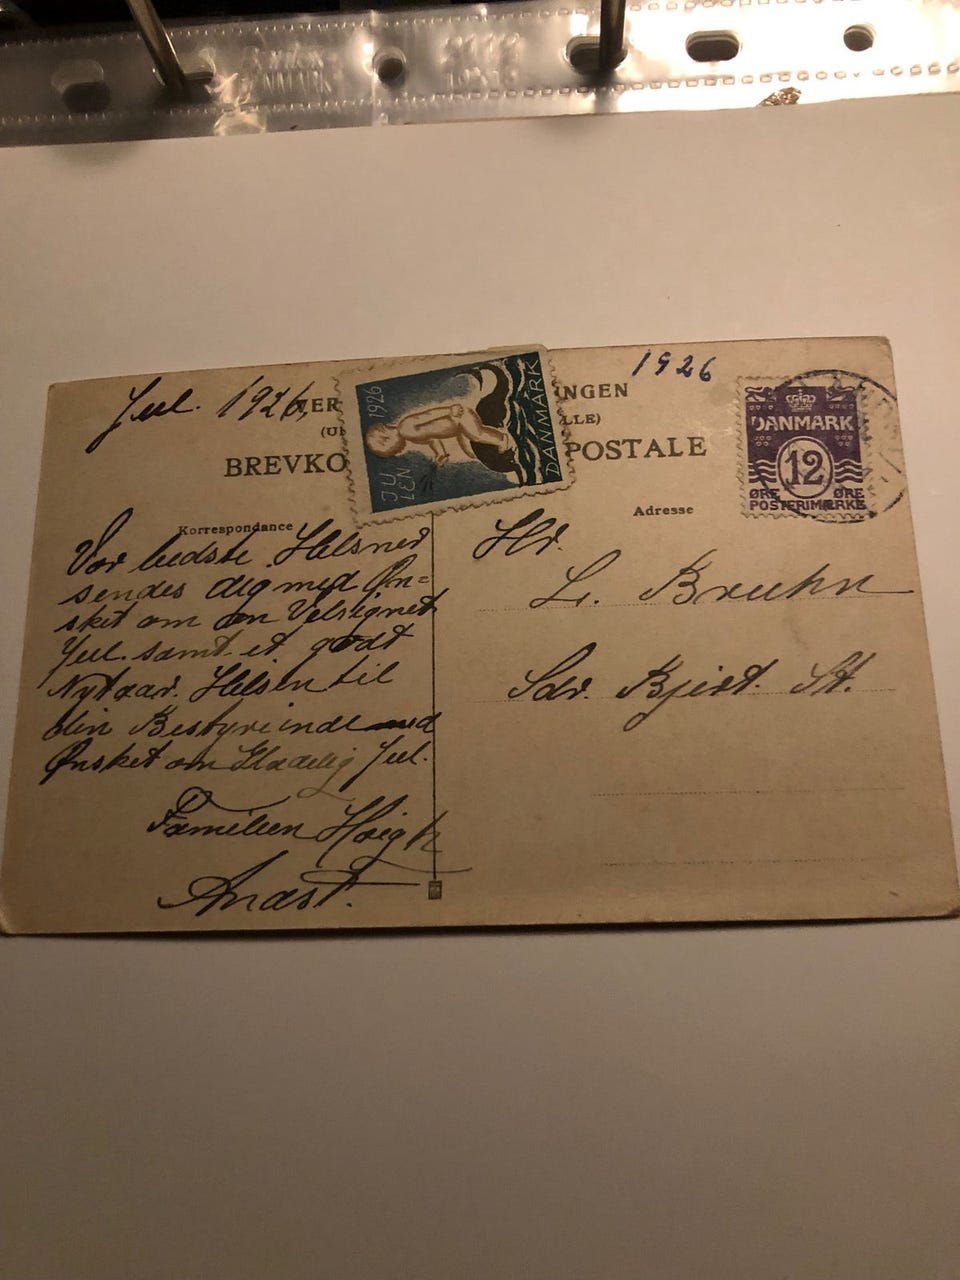 Jul. 1926.
1926
VER
NGEN
(U
LLE)
BREVKO
POSTALE
JULEN 1926 DANMARK
DANMARK
12
ØRE ØRE
POSTFRIMÆRKE
Korrespondance
Adresse
Vor bedste Hilsner
sendes dig med Øn=
sket om en Velsignet
Jul. samt et godt
Nytaar. Hilsen til
din Bestyrerinde med
Ønsket om Glædelig Jul.
Familien
Anast.
Hr.
L. Bruhn
Sdr. Bjert. St.